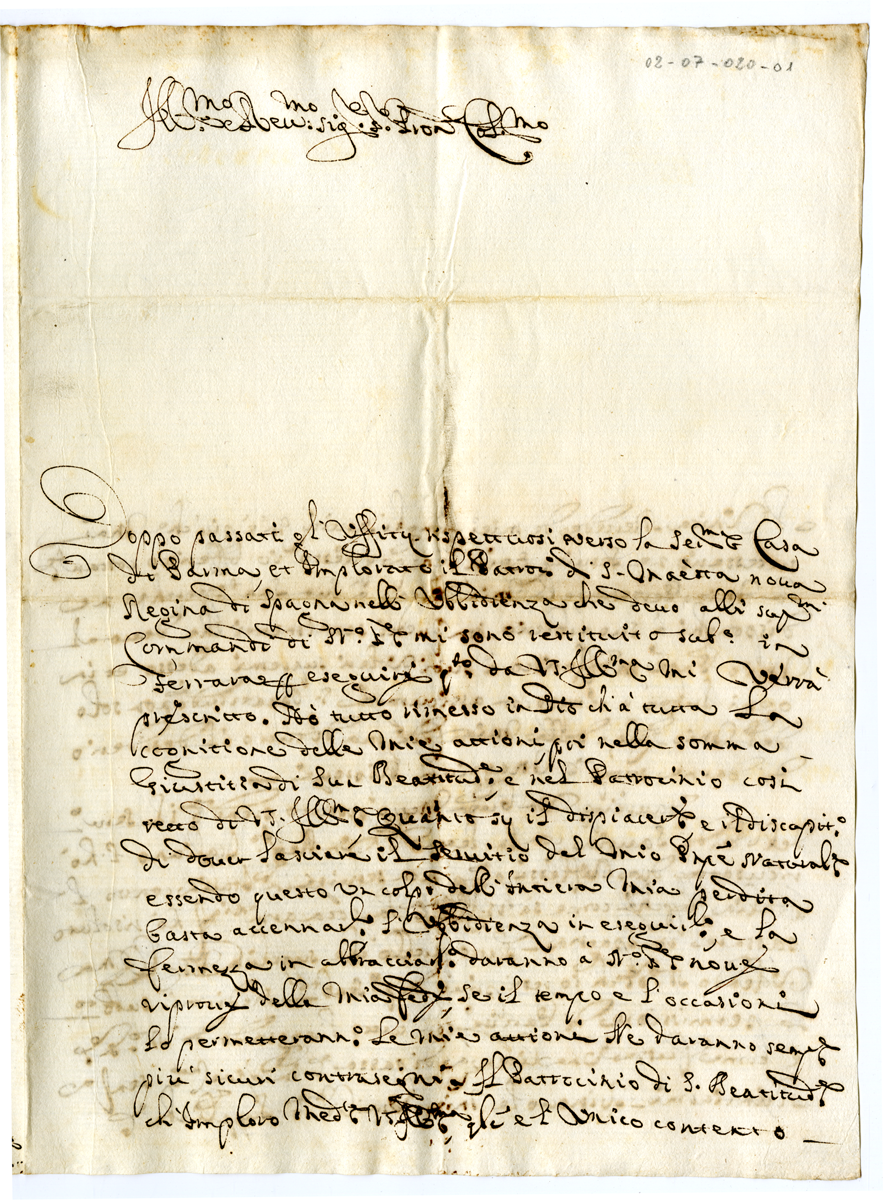 02-07-020-01
Ill.mo e Rev.mo sig.r Pron Col.mo
Doppo passati gl'Uffitij rispettuosi verso la Ser.ma Casa
di Parma, et Implorato il Patroc.o di S. Maestà nova
Regina di Spagna nell' Ubbidienza che devo alli sup.mi
Commandi di N.o S.re mi sono restituito sub.o in
Ferrara eseguirà q.to da V.S. Ill.ma mi Verrà
prescritto. Hò tutto rimesso in Dio ch'à tutta La
cognitione delle Mie attioni, poi nella somma
Giustitia di Sua Beatitud.e, e nel Patrocinio così
retto di V.S. Ill.ma Quanto sij il dispiacere, e il discapit.o
di dover Lasciare il Servitio del Mio Pnpe Naturale
essendo questo Un colpo dell'Intiera Mia perdita
basta accennarl.o. L'Ubbidienza in eseguirl.o, e La
fermezza in abbracciarl.o daranno à N.o S.re nove
riprove della Mia fede, se il tempo e l'occasioni
Lo permetterann.o. Le Mie attioni Ne daranno sempre
più sicuri contrasegni. Il Patrocinio di S. Beatitud.e
ch'Imploro Med.te V.S. Ill.ma q'le è l'Unico contento